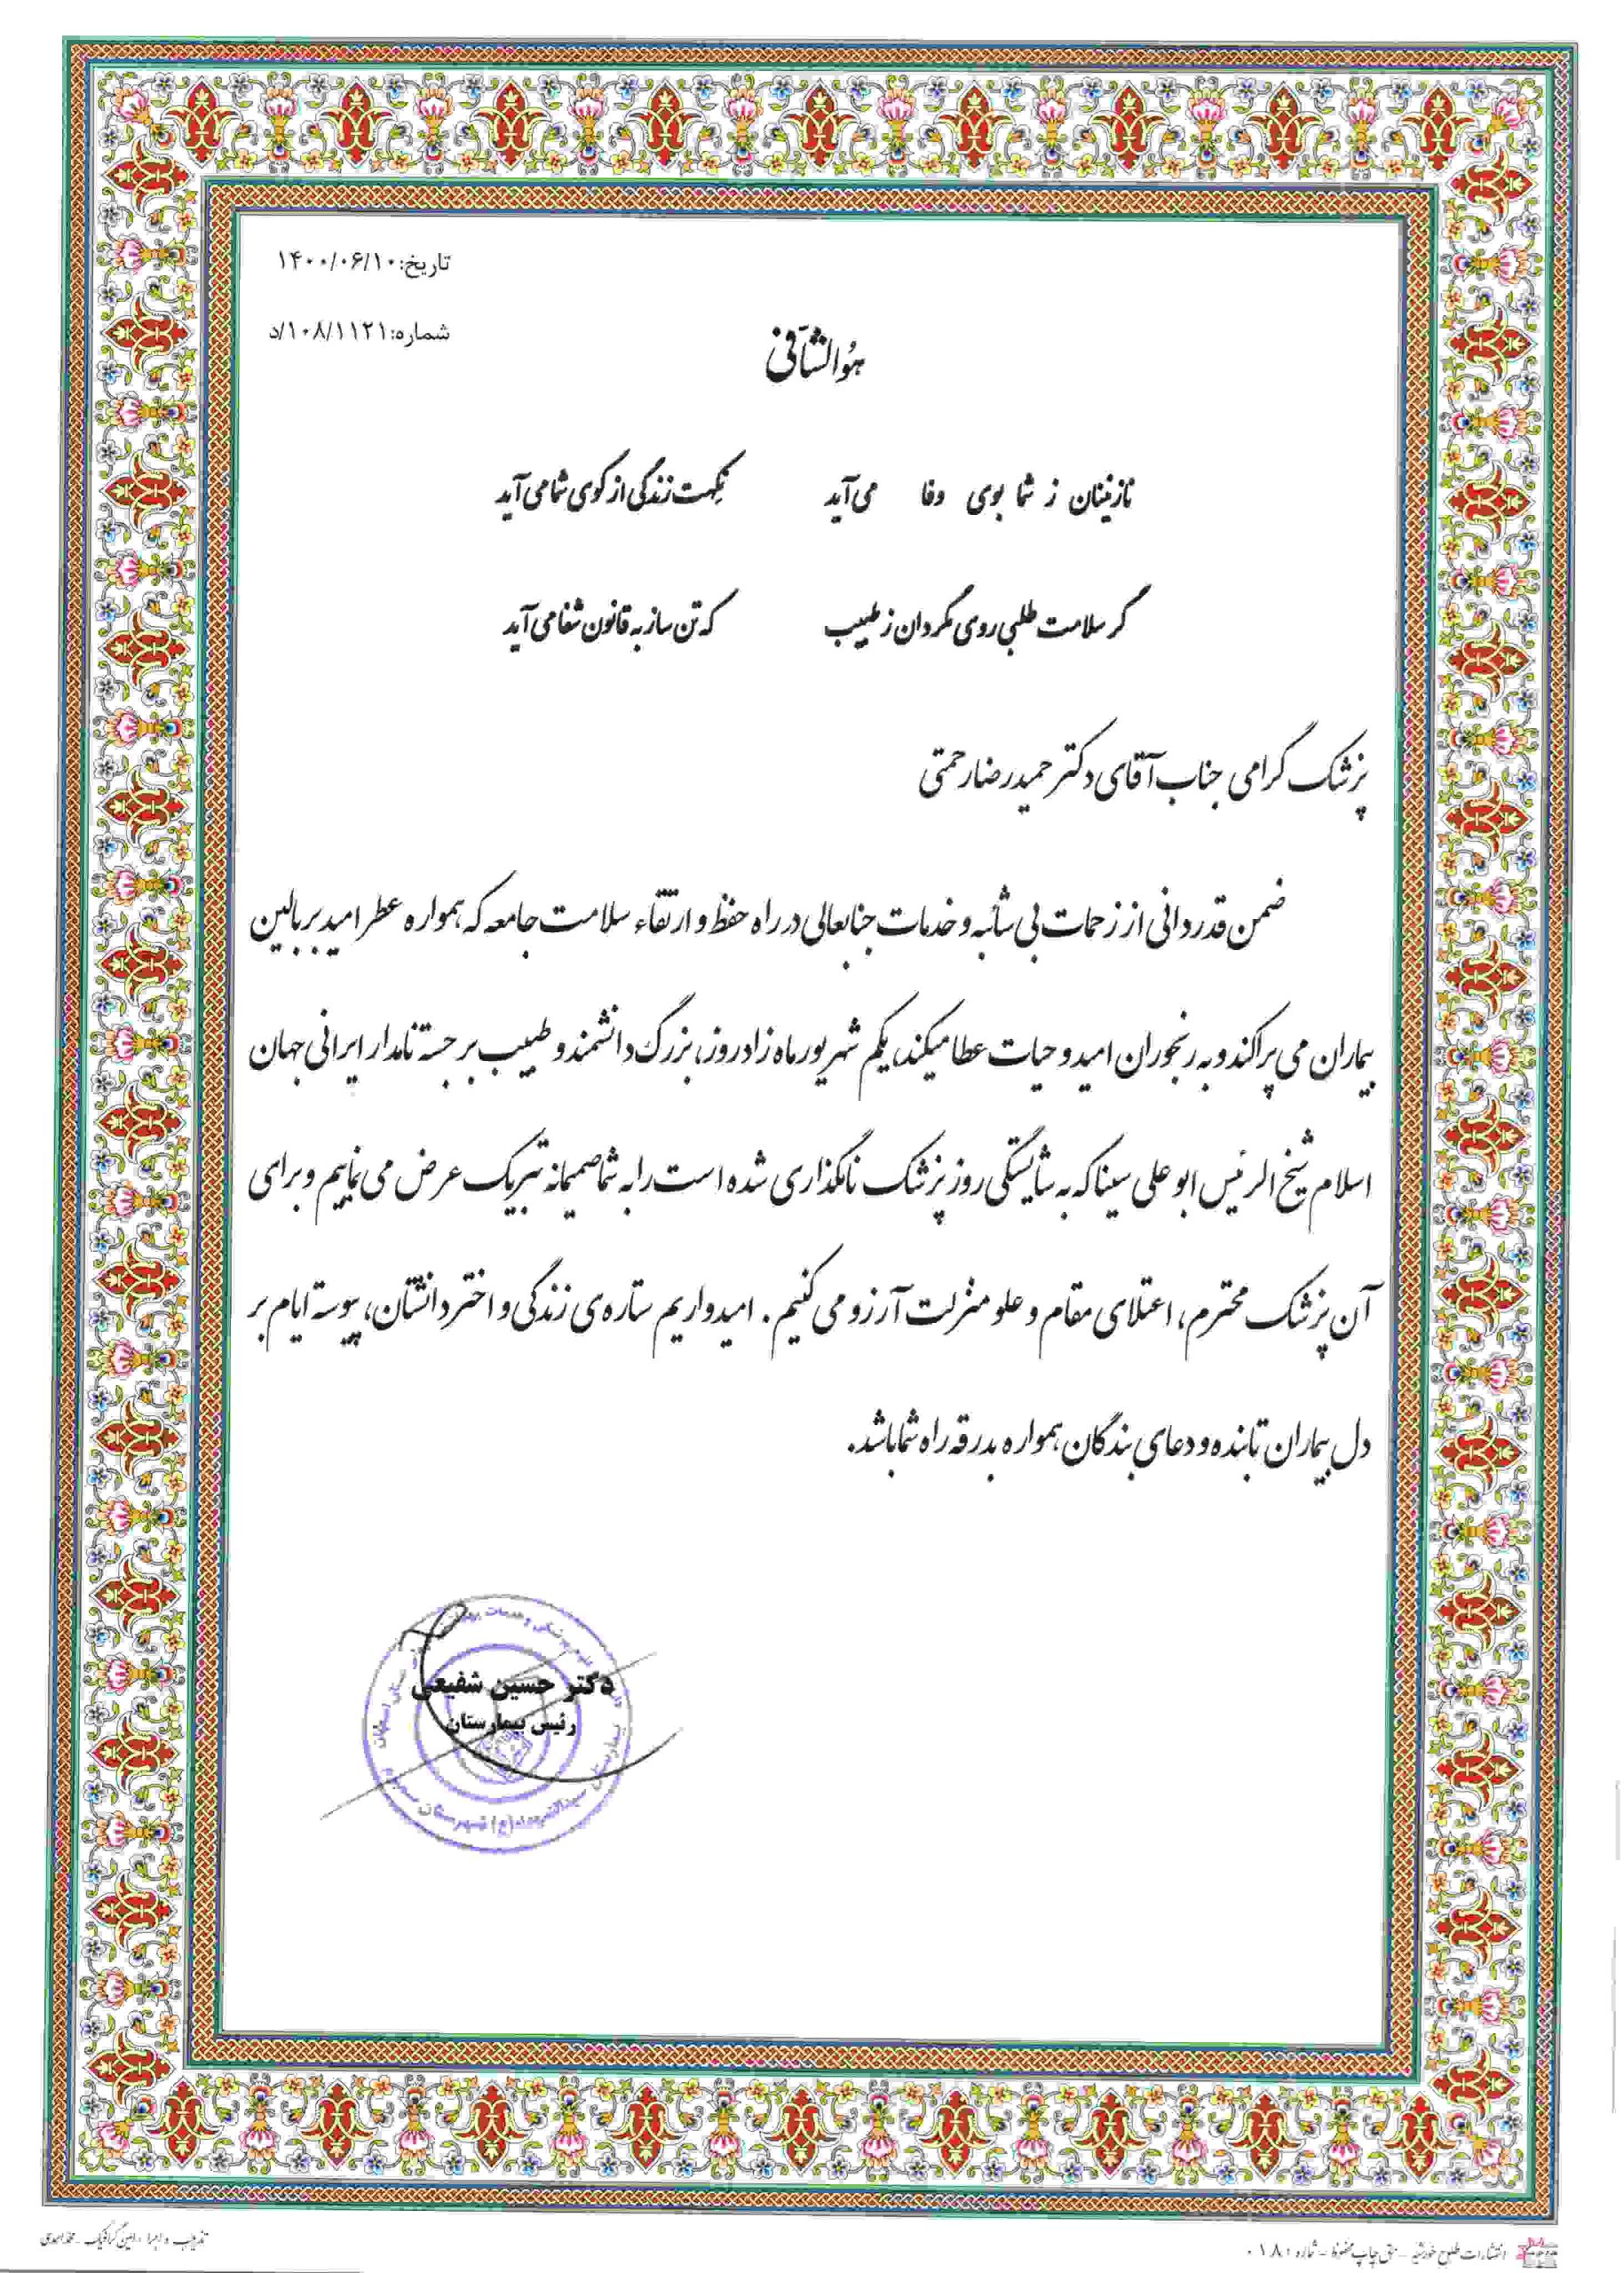 تاریخ: ۱۴۰۰/۰۶/۱۰
شماره: ۱۰۸/۱۱۲۱/د
هوالشافی
نازنینان ز شما بوی وفا می‌آید نکهت زندگی از کوی شما می‌آید
گر سلامت طلبی روی مگردان ز طبیب که تن ساز به قانون شفا می‌آید
پزشک گرامی جناب آقای دکتر حمیدرضا رحمتی
ضمن قدردانی از زحمات بی شائبه و خدمات جنابعالی در راه حفظ و ارتقاء سلامت جامعه که همواره عطر امید بر بالین
بیماران می پراکند و به رنجوران امید و حیات عطا میکند، یکم شهریور ماه زادروز، بزرگ دانشمند و طبیب برجسته نامدار ایرانی جهان
اسلام شیخ الرئیس ابو علی سینا که به شایستگی روز پزشک نامگذاری شده است را به شما صمیمانه تبریک عرض می نماییم و برای
آن پزشک محترم، اعتلای مقام و علو منزلت آرزو می کنیم. امیدواریم ستاره‌ی زندگی و اختر دانشتان، پیوسته ایام بر
دل بیماران تابنده و دعای بندگان همواره بدرقه راه شما باشد.
دکتر حسین شفیعی
رئیس بیمارستان
انتشارات طلوع خورشید - حق چاپ محفوظ - شماره ۰۱۸۰
تذهیب و اجرا: امین گرافیک -